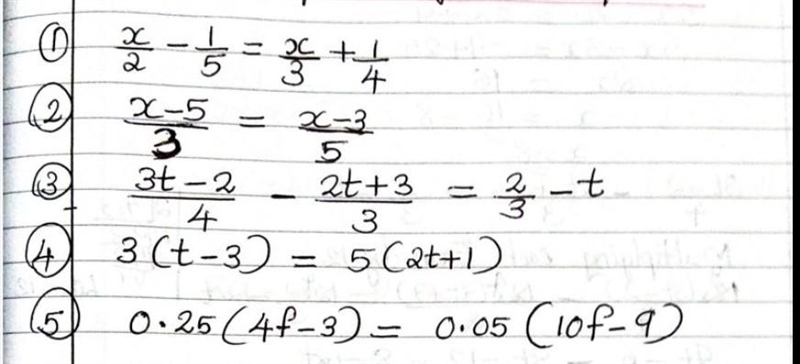 ① x/2 - 1/5 = x/3 + 1/4
② (x-5)/3 = (x-3)/5
③ (3t-2)/4 - (2t+3)/3 = 2/3 - t
④ 3(t-3) = 5(2t+1)
⑤ 0.25(4f-3) = 0.05(10f-9)